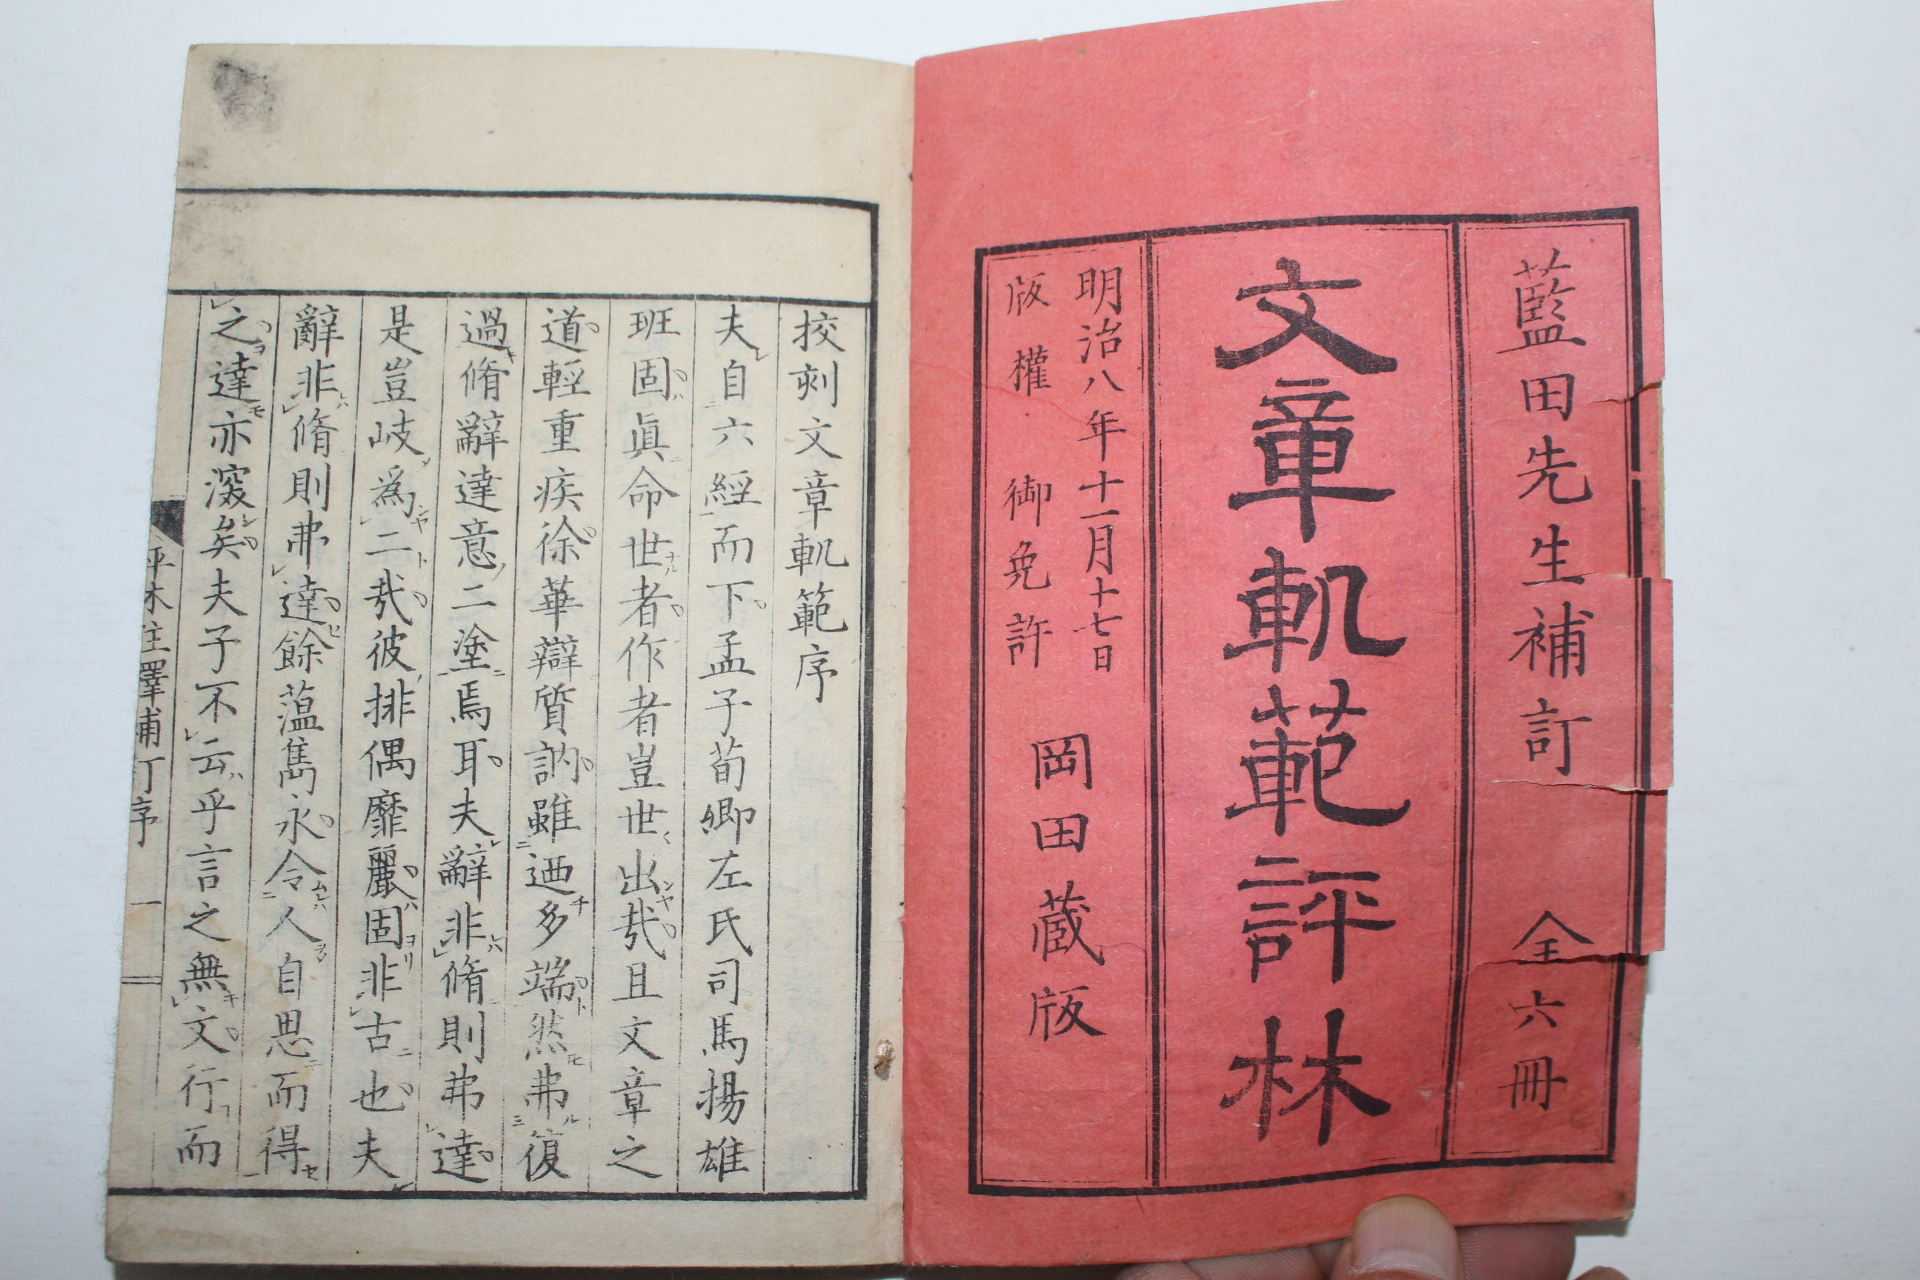 藍田先生補訂　全六冊
文章軌範評林
明治八年十一月十七日
版權　御免許
岡田蔵版
挍刻文章軌範序
夫自六經而下孟子荀卿左氏司馬揚雄
班固眞命世者作者豈世世出哉且文章之
道輕重疾徐華辯質訥雖迺多端然弗復
過脩辭達意二塗焉耳夫辭非脩則弗達
是豈岐為二哉彼排偶靡麗固非古也夫
辭非脩則弗達餘薀雋永令人自思而得
之達亦滚矣夫子不云乎言之無文行而
評林註釋補訂序　一